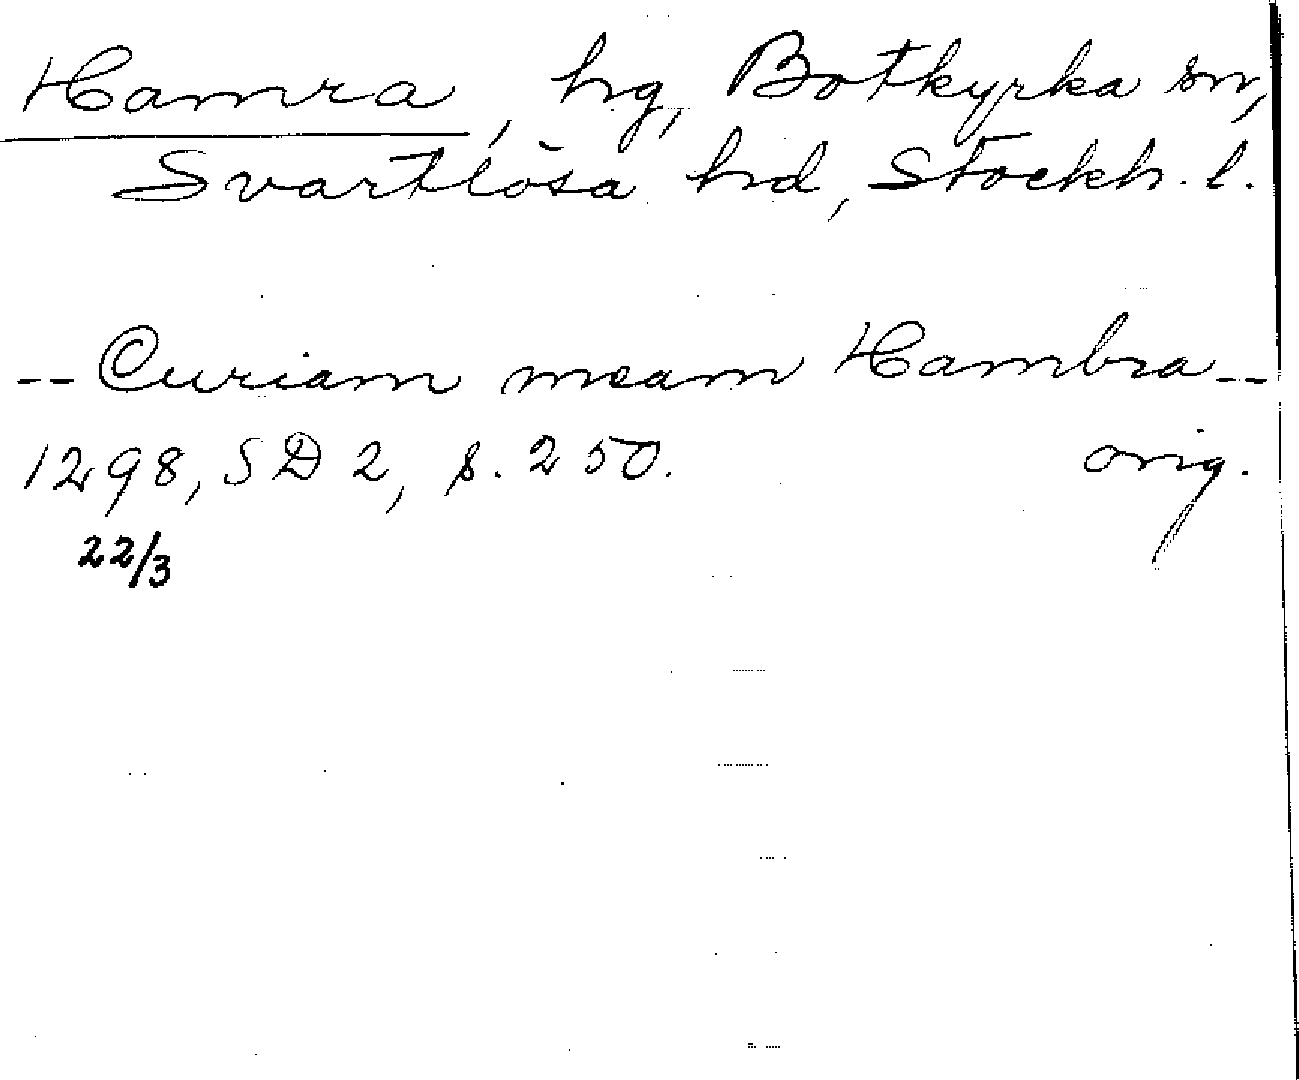 Hamra, hg, Botkyrka sn,
Svartlösa hd, Stockh. l.
-- Curiam meam Hambra --
1298, SD 2, s. 250. orig.
22/3